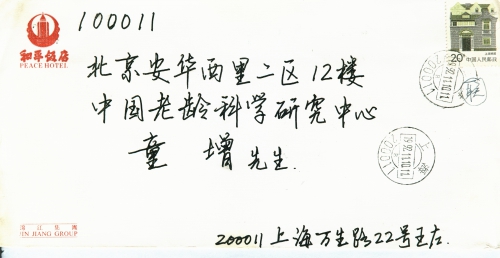 100011
和平饭店
PEACE HOTEL
20分 中国人民邮政
北京安华西里二区12楼
中国老龄科学研究中心
童增先生.
锦江集团
JIN JIANG GROUP
200011上海万生路22号王左